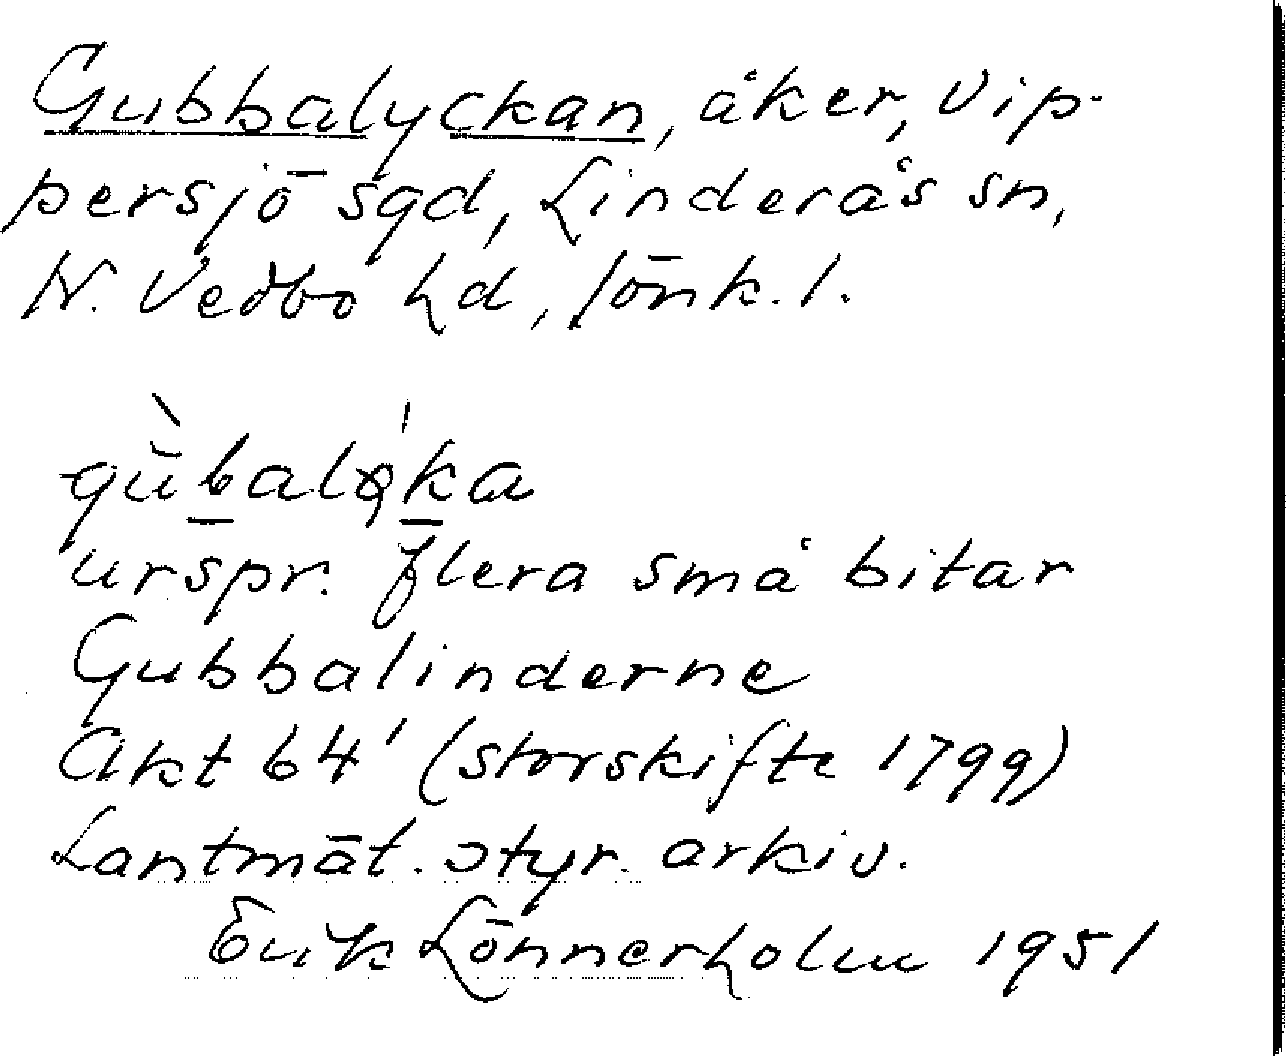 Gubbalyckan, åker, Vip-
persjö sgd, Linderås sn,
N. Vedbo hd, Jönk. l.
gùbaløka
urspr. flera små bitar
Gubbalinderne
Akt 64' (storskifte 1799)
Lantmät. styr. arkiv.
Erik Lönnerholm 1951